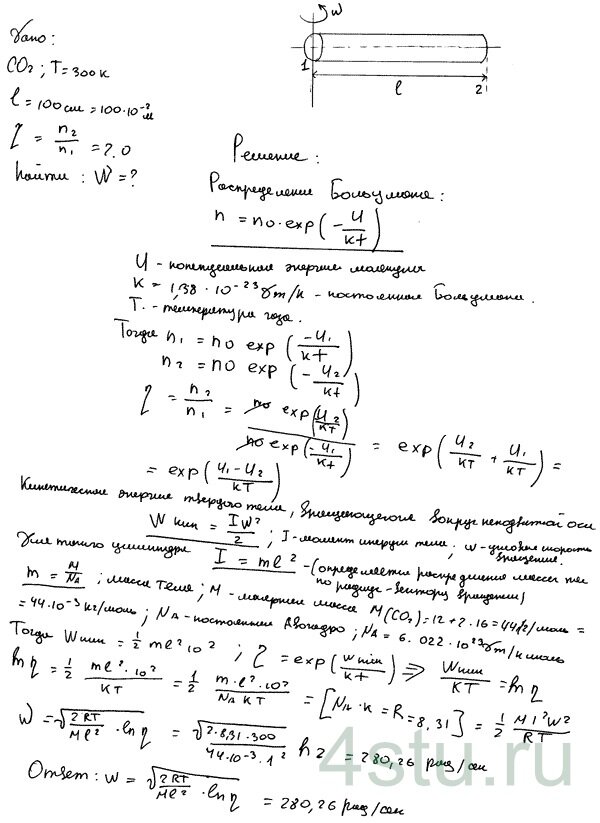 Дано:
CO2 ; T = 300 K
l = 100 см = 100·10⁻² м
η = n₂/n₁ = 2.0
Найти : W = ?
W
1
l
2
Решение :
Распределение Больцмана :
n = n0·exp(-U/kt)
U - потенциальная энергия молекулы
K = 1,38·10⁻²³ Дж/K - постоянная Больцмана.
T. - температура газа.
Тогда n₁ = n0 exp(-U₁/kt)
n₂ = n0 exp(-U₂/kt)
η = n₂/n₁ = n0 exp(U₂/kT) / n0 exp(-U₁/kt) = exp(U₂/kT + U₁/kT) =
= exp(U₁-U₂/kT)
Кинетическая энергия твердого тела, вращающегося вокруг неподвижной оси
W кин = Iw²/2 ; I - момент инерции тела ; w - угловая скорость вращения.
Для тонкого цилиндра I = ml² - (определяется распределения массы тел по радиус-вектору вращения)
m = M/NA ; масса тела ; M - молярная масса M(CO2) = 12 + 2·16 = 44 г/моль =
= 44·10⁻³ кг/моль ; NA - постоянная Авогадро ; NA = 6.022·10²³
Тогда Wкин = ½ ml²w² ; η = exp(Wкин/kt) ⇒ Wкин/KT = ln η
ln η = ½ ml²·w²/KT = ½ m·l²·w²/NA KT = [NA·K = R = 8,31] = ½ Ml²W²/RT
W = √(2RT/Ml²·ln η) = √(2·8,31·300/44·10⁻³·1² ln 2) = 280,26 рад/сек
Ответ : W = √(2RT/Ml²·ln η) = 280,26 рад/сек
4stu.ru